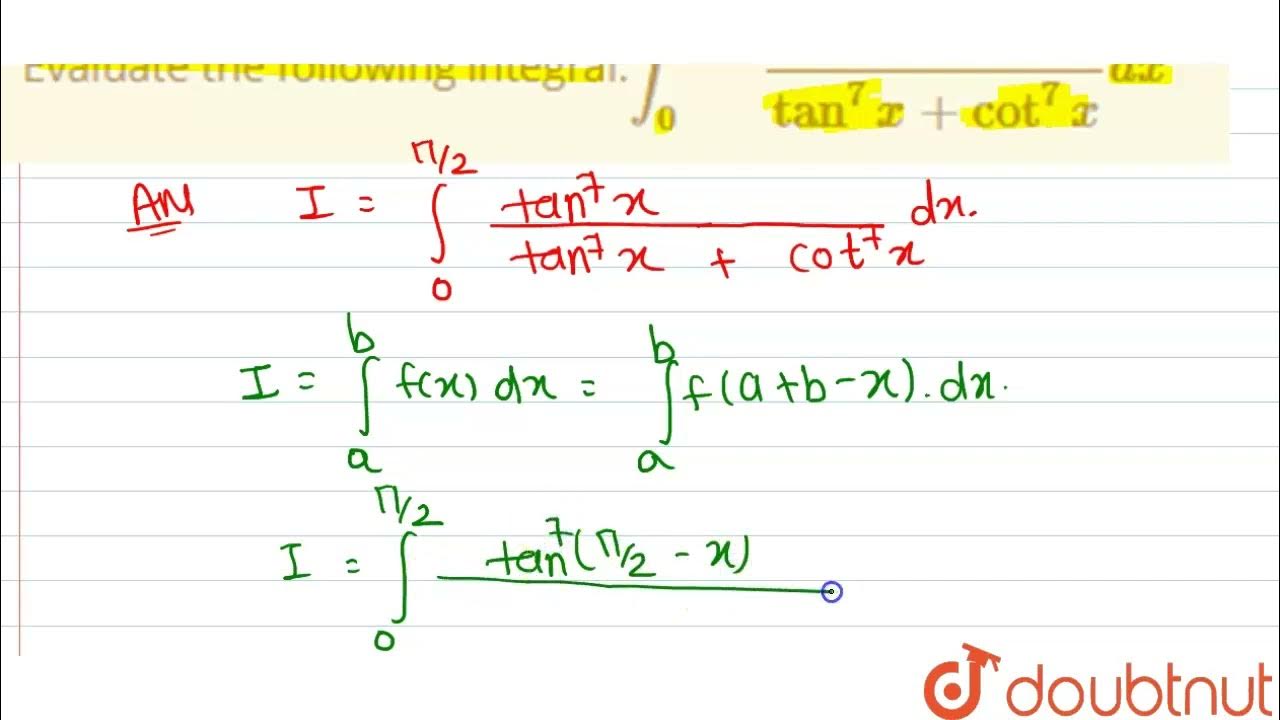 Evaluate the following integral: ∫₀ dx
tan⁷ x + cot⁷ x
Ans I = ∫₀^(π/2) tan⁷ x / (tan⁷ x + cot⁷ x) dx.
I = ∫ₐᵇ f(x) dx = ∫ₐᵇ f(a+b-x). dx.
I = ∫₀^(π/2) tan⁷(π/2 - x)
doubtnut